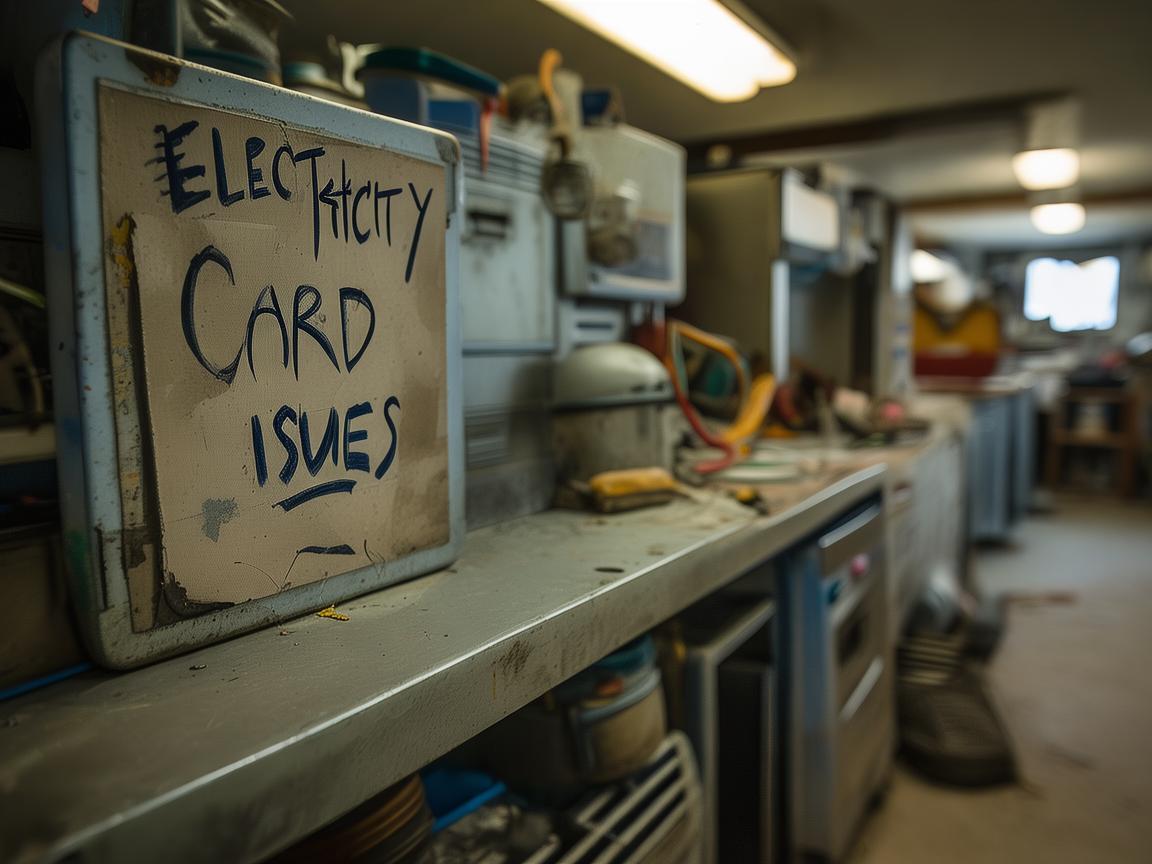 ELECTRICITY
CARD
ISSUES